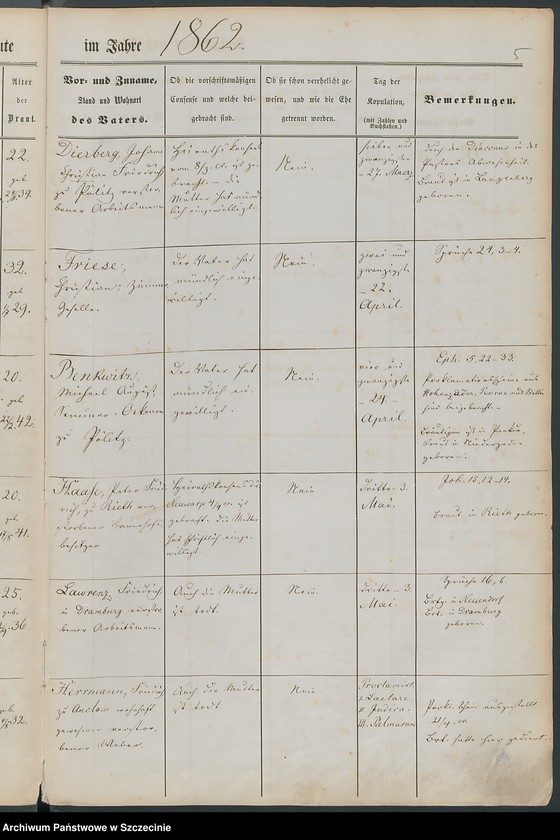 ute
im Jahre 1862.
5
Alter
der
Braut.
Vor- und Zuname,
Stand und Wohnort
des Vaters.
Ob die vorschriftsmäßigen
Consense und welche bei-
gebracht sind.
Ob sie schon verehelicht ge-
wesen, und wie die Ehe
getrennt worden.
Tag der
Kopulation,
(mit Zahlen und
Buchstaben.)
Bemerkungen.
22.
geb
39.
Dierberg, Johann
Christian Friedrich
zu Pölitz verstor-
bener Arbeitsmann
Heirathskonsens
vom 8/3. cr. ist ge-
bracht. die
Mutter hat münd-
lich eingewilligt.
Nein.
sieben und
zwanzigste
- 27. Maerz
durch den Diaconus in des
Pastors Abwesenheit.
Braut ist in
geboren.
32.
geb
29.
Friese,
Christian; Zimmer
Geselle.
der Vater hat
mündlich einge-
willigt.
Nein.
zwei und
zwanzigste
- 22.
April.
Sprüche 24, 3-4.
20.
geb
42.
Benkwitz,
Michael August,
Seminar-Oekonom
zu Pölitz.
Der Vater hat
mündlich ein-
gewilligt.
Nein.
vier und
zwanzigste
- 24. -
April.
Eph. 5, 22-33.
Proklamationsscheine aus
beigebracht.-
Bräutigam ist in
Braut in
geboren.
20.
geb.
41.
Haase, Peter Fried-
rich, zu Rieth ver-
storbener
besitzer
Heirathskonsens d.d.
Neuwarp 4/4 cr. ist
gebracht. die Mutter
hat schriftlich einge-
willigt.
Nein
dritte 3.
Mai.
Joh. 15, 12-14.
Braut in Rieth geboren.
25.
geb.
36
Lawrenz, Friedrich
in Dramburg verstor-
bener Arbeitsmann.
Auch die Mutter
ist todt.
Nein.
dritte 3.
Mai.
Sprüche 16, 6.
Brtg. in Neuendorf
Brt. in Dramburg
geboren.
geb.
32.
Herrmann, Friedrich
zu Anclam wohnhaft
gewesener verstor-
bener Weber.
Auch die Mutter
ist todt
Nein
Proclamirt
I. Laetare
II. Judica.
III. Palmarum
Prokl. schein ausgestellt
21/4. cr
Brt. hatte hier gedient.
Archiwum Państwowe w Szczecinie